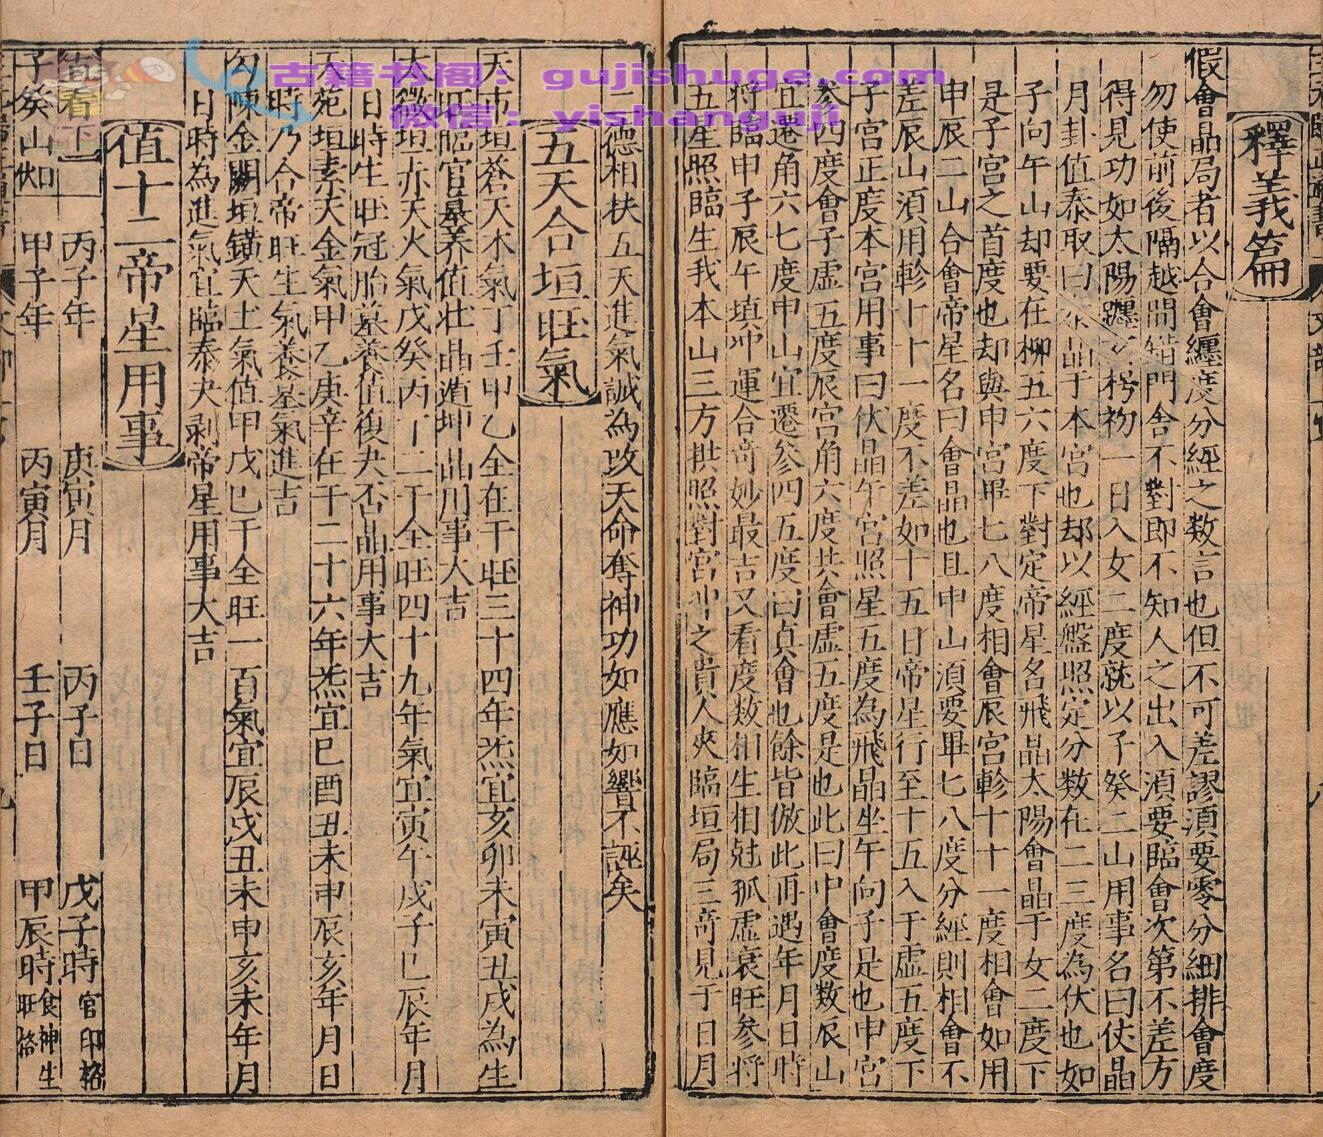 釋義篇
假會晶局者以合會纏度分經之数言也但不可差謬湏要零分細排會度
勿使前後隔越開錯門舎不對即不知人之出入湏要臨會次第不差方
得見功如太陽躔玄枵初一日入女二度就以子癸二山用事名曰伏晶
月卦值泰取曰泰晶于本宮也却以經盤照定分数在二三度為伏也如
子向午山却要在柳五六度下對定帝星名飛晶太陽會晶于女二度下
是子宮之首度也却與申宮畢七八度相會辰宮軫十十一度相會如用
申辰二山合會帝星名曰會晶也且申山湏要畢七八度分經則相會不
差辰山湏用軫十十一度不差如十五日帝星行至十五入于虛五度下
子宮正度本宮用事曰伏晶午宮照星五度為飛晶坐午向子是也申宮
参四度會子虛五度辰宮角六度共會虛五度是也此曰中會度数辰山
宜遷角六七度申山宜遷参四五度曰貞會也餘皆倣此再遇年月日時
將臨甲子辰午填冲運合竒妙最吉又看度数相生相尅孤虛衰旺参將
五星照臨生我本山三方拱照對宮冲之貴人夾臨垣局三竒見于日月
二德相扶五天進氣誠為攺天命奪神功如應如響不誣矣
五天合垣旺氣
天市垣蒼天木氣丁壬甲乙全在干旺三十四年炁宜亥卯未寅丑戌為生
旺臨官墓养值壮晶遁坤晶用事大吉
太微垣赤天火氣戊癸丙丁二干全旺四十九年氣宜寅午戌子巳辰年月
日時生旺冠胎墓養值復夬否晶用事大吉
天苑垣素天金氣甲乙庚辛在干二十六年炁宜巳酉丑未申辰亥年月日
時乃合帝旺生氣養墓氣進吉
勾陳金闕垣黅天土氣值甲戊己干全旺一百氣宜辰戌丑未申亥未年月
日時為進氣宜臨泰夬剥帝星用事大吉
值十二帝星用事
丙子年 庚寅月 丙子日 戊子時 官印格
子癸山如 甲子年 丙寅月 壬子日 甲辰時 食神生旺格
古籍书阁：gujishuge.com
微信：yishanguji